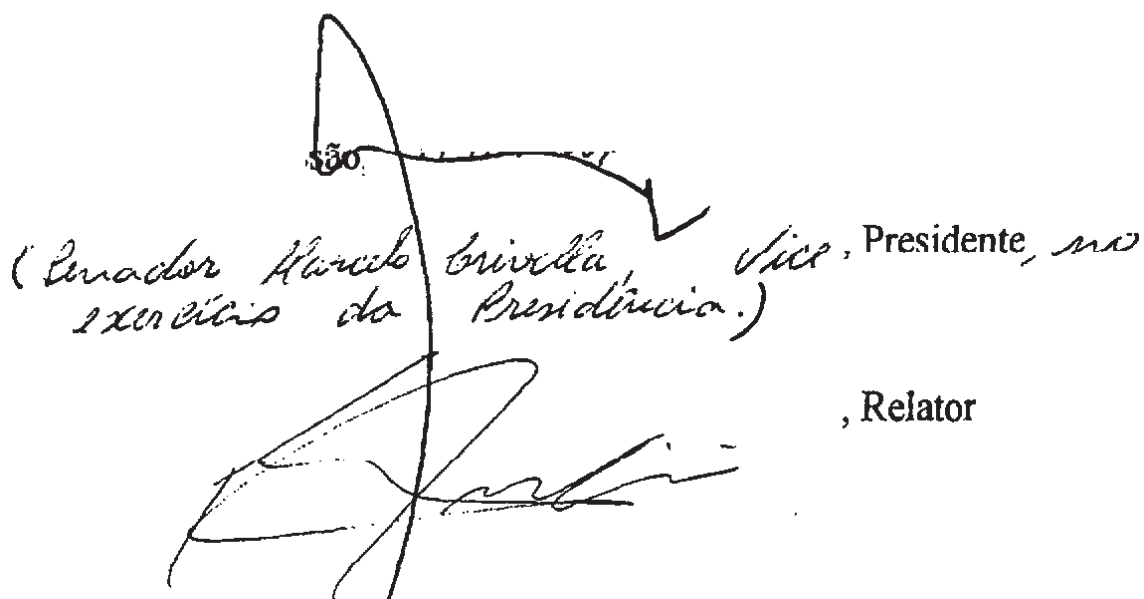 são
(Senador Marcelo Crivella, Vice, Presidente, no
exercício da Presidência.)
, Relator